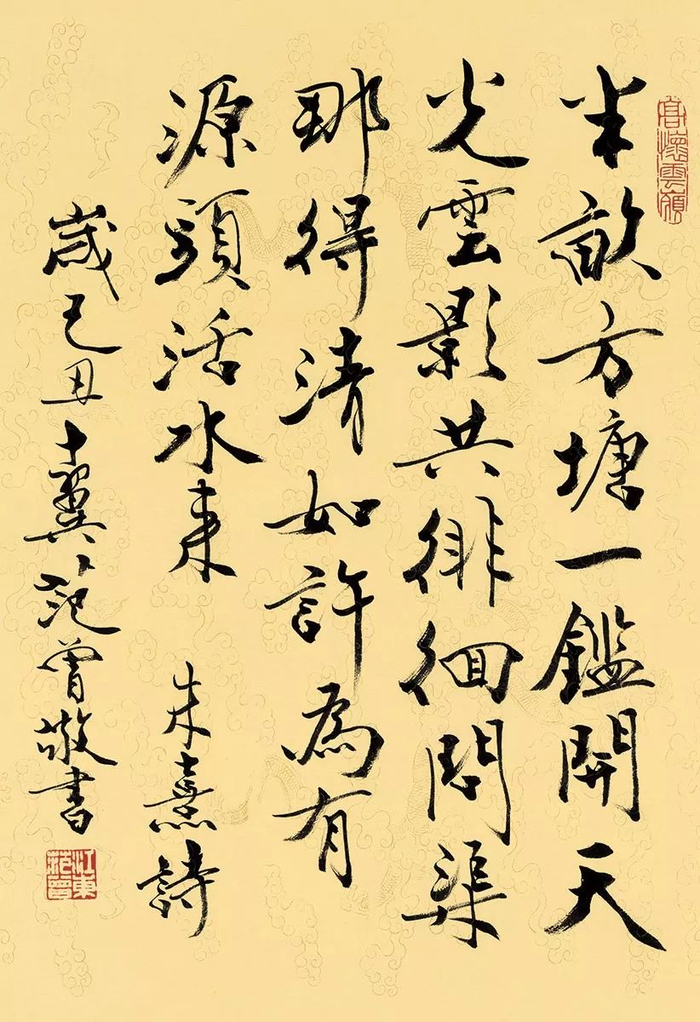 高懷雲嶺
半畝方塘一鑑開天
光雲影共徘徊問渠
那得清如許為有
源頭活水来
朱熹詩
歲己丑十翼范曾敬書
江東范曾